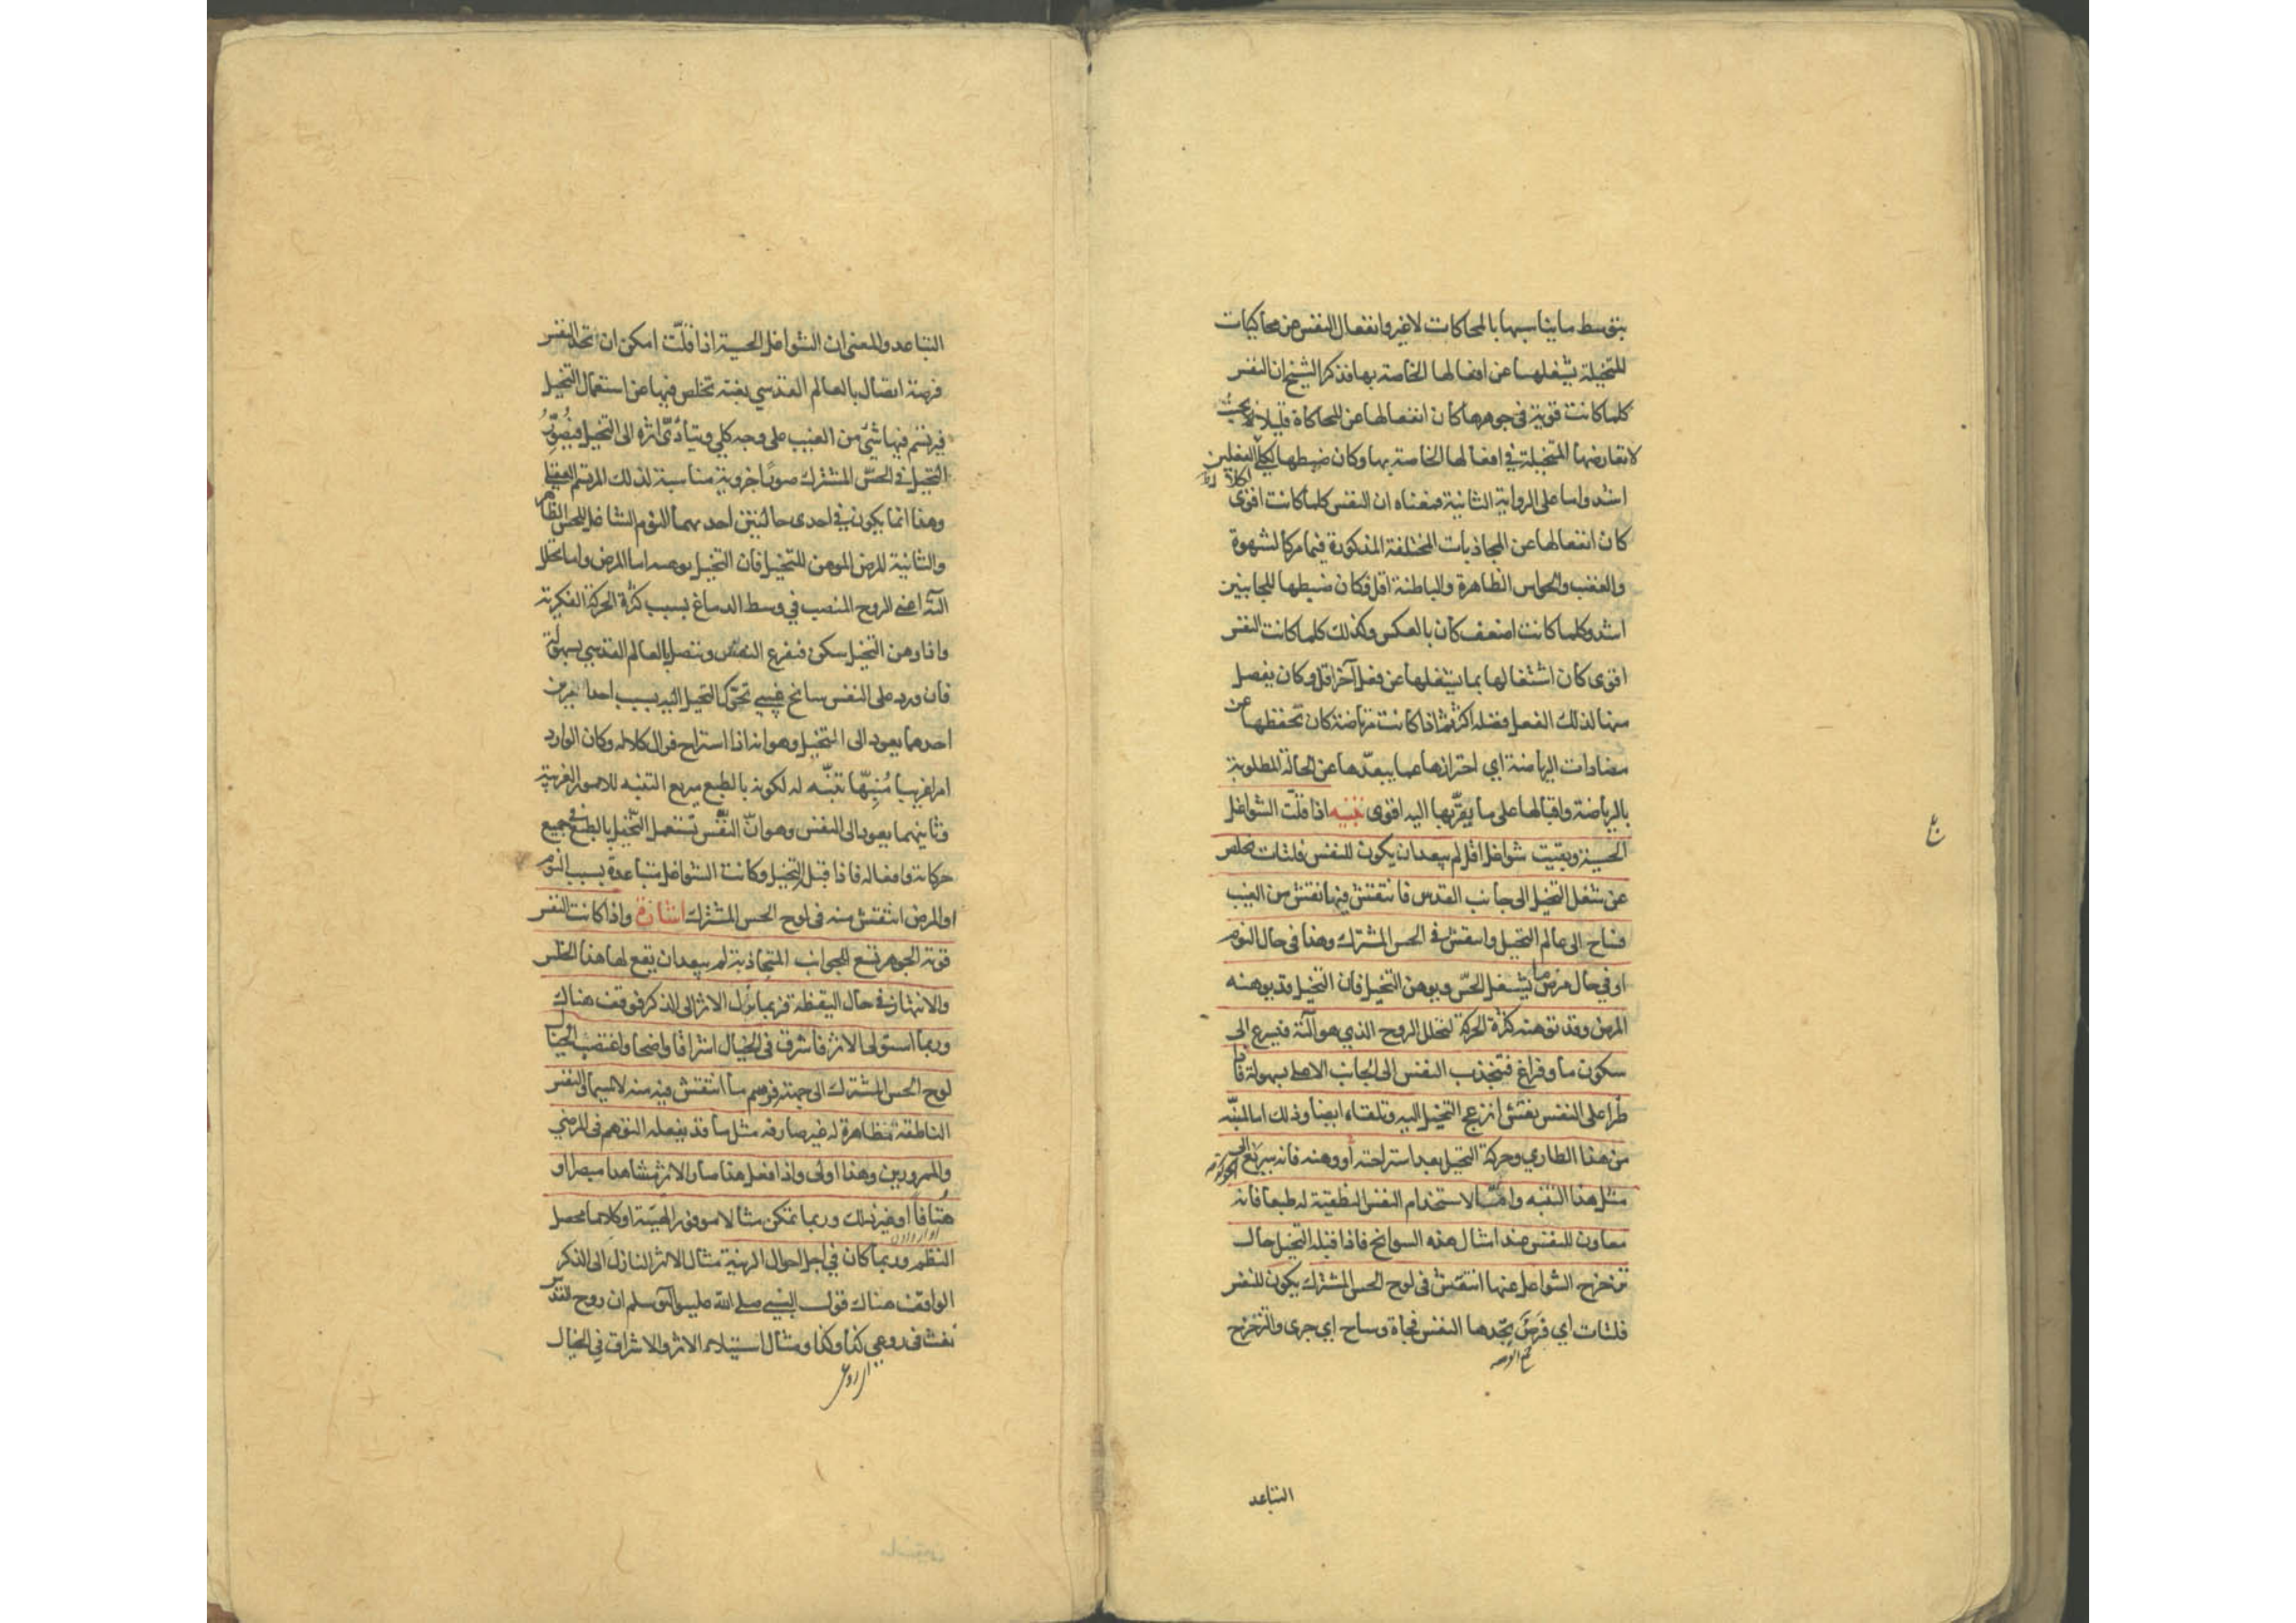 بتوسط ما يناسبها بالمحاكات لا غير وانفعال النفس عن محاكيات
المتخيلة يشغلها عن افعالها الخاصة بها فذكر الشيخ ان النفس
كلما كانت قوية في جوهرها كان انفعالها عن المحاكاة قليلا بحيث
لا تعارضها المتخيلة في افعالها الخاصة بها وكان ضبطها لكلا الفعلين
اشد واما على الرواية الثانية فمعناه ان النفس كلما كانت اقوى
كان انفعالها عن المجاذبات المختلفة المذكورة فيما مر كالشهوة
والغضب والحواس الظاهرة والباطنة اقل وكان ضبطها للجانبين
اشد وكلما كانت اضعف كان بالعكس وكذلك كلما كانت النفس
اقوى كان اشتغالها بما يشغلها عن فعل آخر اقل وكان يفضل
منها لذلك الفعل فضلة اكثر ثم اذا كانت مرتاضة كان تحفظها عن
مضادات الرياضة اي احترازها عما يبعدها عن الحالة المطلوبة
بالرياضة واقبالها على ما يقربها اليه اقوى تنبيه اذا قلّت الشواغل
الحسية وبقيت شواغل اقل لم يبعد ان يكون للنفس فلتات تخلص
عن شغل التخيل الى جانب القدس فانتقش فيها نقش من الغيب
فساح الى عالم التخيل وانتقش في الحس المشترك وهذا في حال النوم
او في حال مرض ما يشغل الحسّ ويوهن التخيل فان التخيل قد يوهنه
المرض وقد توهنه كثرة الحركة لتحلل الروح الذي هو آلته فيسرع الى
سكون ما وفراغ فتنجذب النفس الى الجانب الاعلى بسهولة فاذا
طرأ على النفس نقش انزعج التخيل اليه وتلقاه ايضا وذلك اما لمنبّه
من هذا الطاري وحركة التخيل بعد استراحته أو وهنه فانه سريع الى
مثل هذا التنبه واما لاستخدام النفس النطقية له طبعا فانه
معاون للنفس عند امثال هذه السوانح فاذا قبله التخيل حال
تزحزح الشواغل عنها انتقش في لوح الحس المشترك يكون للنفس
فلتات اي فرص يجدها النفس فجاة وساح اي جرى والتزحزح
التباعد
التباعد والمعنى ان الشواغل الحسية اذا قلّت امكن ان تجد النفس
فرصة اتصال بالعالم القدسي بغتة تخلص فيها عن استعمال التخيل
فيرتسم فيها شيء من الغيب على وجه كلي ويتأدّى اثره الى التخيل فيُصوِّرُ
التخيل في الحسّ المشترك صورا جزوية مناسبة لذلك المرتسم العقلي
وهذا انما يكون في احدى حالتين احديهما النوم الشاغل للحس الظاهر
والثانية المرض الموهن للتخيل فان التخيل يوهنه اما المرض واما تحلل
آلته اعنى الروح المنصب في وسط الدماغ بسبب كثرة الحركة الفكرية
واذا وهن التخيل سكن فتفرغ النفس وتتصل بالعالم القدسي بسهولة
فان ورد على النفس سانح غيبي تحرّك التخيل اليه بسبب احد امرين
احدهما يعود الى التخيل وهو انه اذا استراح فزال كلاله وكان الوارد
امرا غريبا مُنبِّها تنبّه له لكونه بالطبع سريع التنبه للامور الغريبة
وثانيهما يعود الى النفس وهو انّ النفس تستعمل التخيل بالطبع في جميع
حركاته وافعاله فاذا قبل التخيل وكانت الشواغل متباعدة بسبب النوم
او المرض انتقش منه في لوح الحس المشترك اشارة واذا كانت النفس
قوية الجوهر تسع للجوانب المتجاذبة لم يبعد ان يقع لها هذا الخلس
والانتهاز في حال اليقظة فربما نزل الاثر الى الذكر فوقف هناك
وربما استولى الاثر فاشرق في الخيال اشراقا واضحا واغتصب الخيال
لوح الحس المشترك الى جهته فرسم ما انتقش فيه منه لا سيما والنفس
الناطقة مظاهرة له غير صارفة مثل ما قد يفعله التوهم في المرضى
والممرورين وهذا اولى واذا فعل هذا صار الاثر مشاهدا مبصرا او
هتافا او غير ذلك وربما تمكن مثالا موفور الهيئة او كلاما محصل
النظم وربما كان في اجل احوال الزينة مثال الاثر النازل الى الذكر
الواقف هناك قول النبي صلى الله عليه وآله وسلم ان روح القدس
نفث في روعي كذا وكذا ومثال استيلاء الاثر والاشراق في الخيال